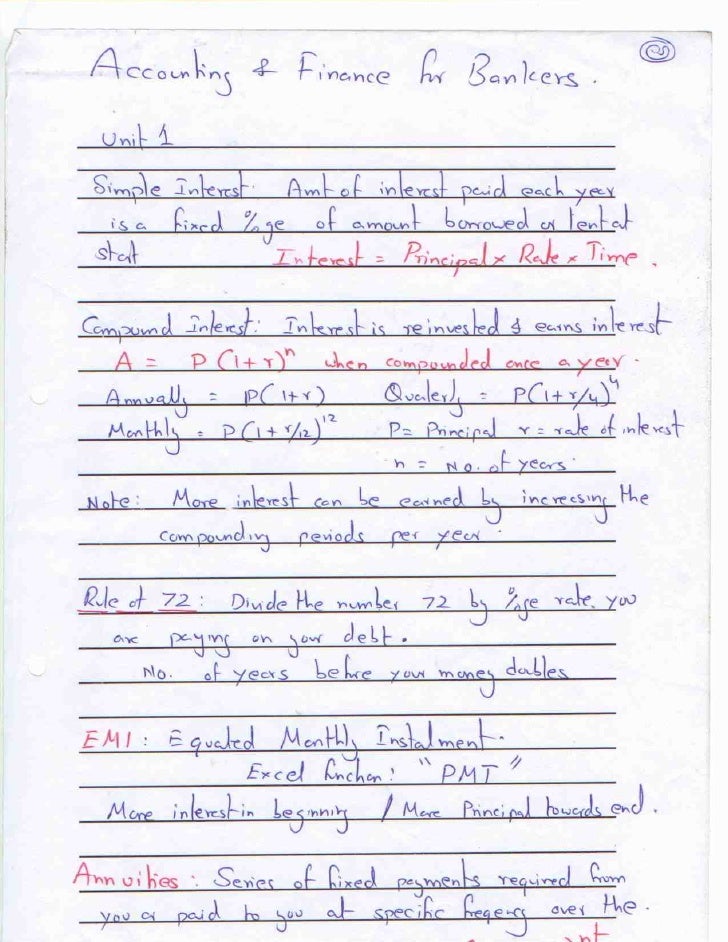 Accounting & Finance for Bankers.
Unit 1
Simple Interest: Amt of interest paid each year
is a fixed %ge of amount borrowed or lent at
start Interest = Principal x Rate x Time.
Compound Interest: Interest is reinvested & earns interest
A = P(1+r)^n when compounded once a year.
Annually = P(1+r) Quaterly = P(1+r/4)^4
Monthly = P(1+r/12)^12 P= Principal r = rate of interest
n = No. of years.
Note: More interest can be earned by increasing the
compounding periods per year.
Rule of 72: Divide the number 72 by %ge rate, you
are paying on your debt.
No. of years before your money doubles
EMI: Equated Monthly Instalment.
Excel function: "PMT"
More interest in beginning / More Principal towards end.
Annuities: Series of fixed payments required from
you or paid to you at specific freqency over the.